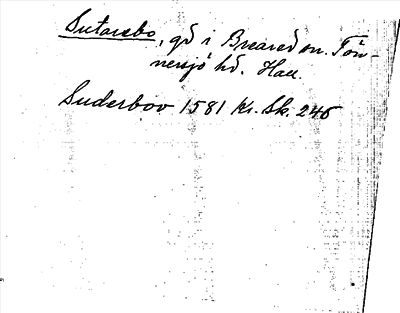 Sutarebo, gd i Breared sn. Tön-
nersjö hd. Hall.
Suderbov 1581 Kr. Sk. 246